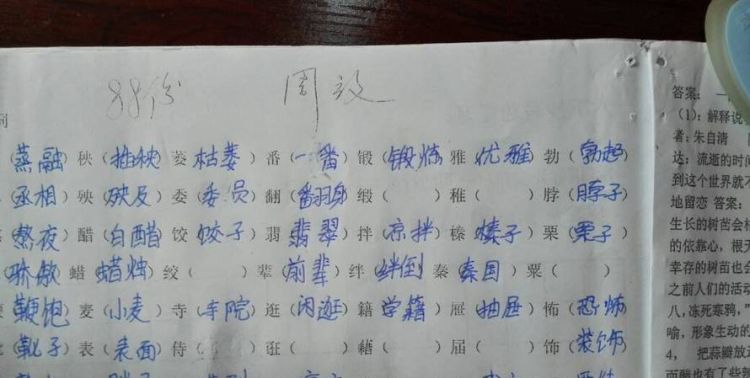 88份 周
蒸融）秧（插秧）萎 枯萎）番（一番）锻（锻炼 雅 优雅 勃（勃起
丞相）殃 殃及）委（委员 翻（翻身 缎（ ）稚（ ）脖（脖子
熬夜）醋（白醋 饺（饺子 翡 翡翠）拌（凉拌 榛 榛子）栗（栗子
骄傲 蜡（蜡烛 绞（ ）辈（前辈）绊（绊倒 秦 秦国）粟（ ）
鞭炮 麦（小麦）寺（寺院）逛（闲逛）籍 学籍）屉 抽屉）怖（恐怖
靴子）表（表面 侍（ ）诳（ ）藉（ ）届（ ）饰（装饰
答案：
（1）：解释说
者：朱自清
达：流逝的时间
到这个世界就不
地留恋 答案：
生长的树苗会枯
的依靠心，根无
幸存的树苗也会
之前人们的活动
八，冻死寒鸦，
喻，形象生动的
4， 把蒜瓣放